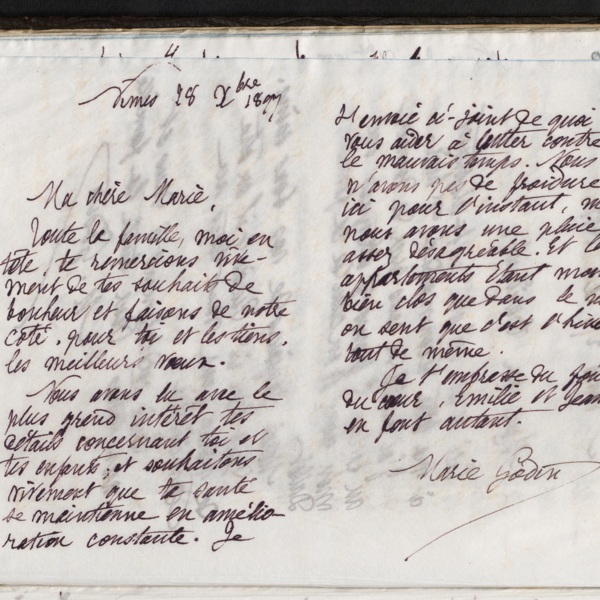 Nîmes 28 Xbre 1897
Ma chère Marie,
Toute la famille, moi en
tête, te remercions vive-
ment de tes souhaits de
bonheur et faisons de notre
côté, pour toi et les tiens,
les meilleurs vœux.
Nous avons lu avec le
plus grand intérêt tes
détails concernant toi et
tes enfants, et souhaitons
vivement que ta santé
se maintienne en amélio-
ration constante. Je
t'envoie ci-joint de quoi
vous aider à lutter contre
le mauvais temps. Nous
n'avons pas de froidure
ici pour l'instant, m
nous avons une pluie
assez désagréable. Et le
appartements étant moi
bien clos que dans le n
on sent que c'est l'hive
tout de même.
Je t'embrasse du fon
du cœur, Emilie et Jean
en font autant.
Marie Godin